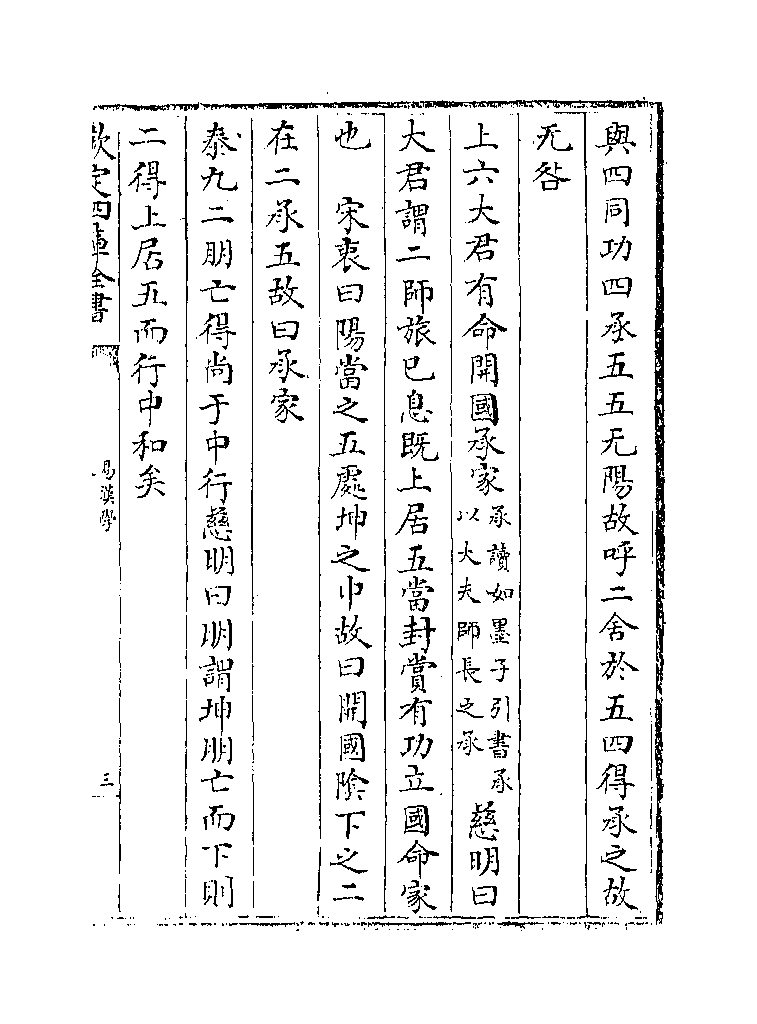 與四同功四承五五无陽故呼二舍於五四得承之故
无咎
上六大君有命開國承家承讀如墨子引書承以大夫師長之承慈明曰
大君謂二師旅已息既上居五當封賞有功立國命家
也　宋衷曰陽當之五處坤之中故曰開國陰下之二
在二承五故曰承家
泰九二朋亡得尚于中行慈明曰朋謂坤朋亡而下則
二得上居五而行中和矣
欽定四庫全書
易漢學
三